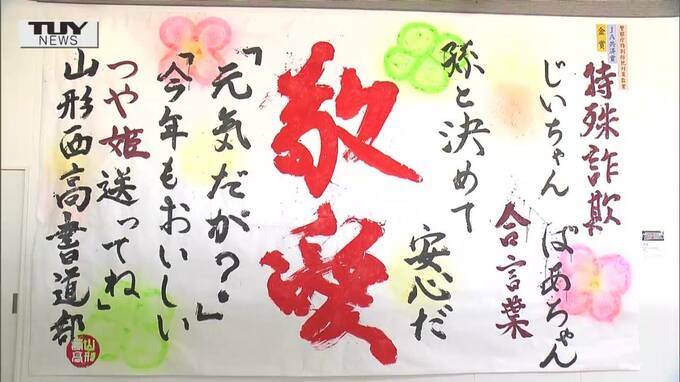 TUY
NEWS
JA共済賞
金賞
特殊詐欺
じいちゃん
ばあちゃん
合言葉
孫と決めて
安心だ
敬愛
「元気だが？」
「今年もおいしい
つや姫送ってね」
山形西高書道部